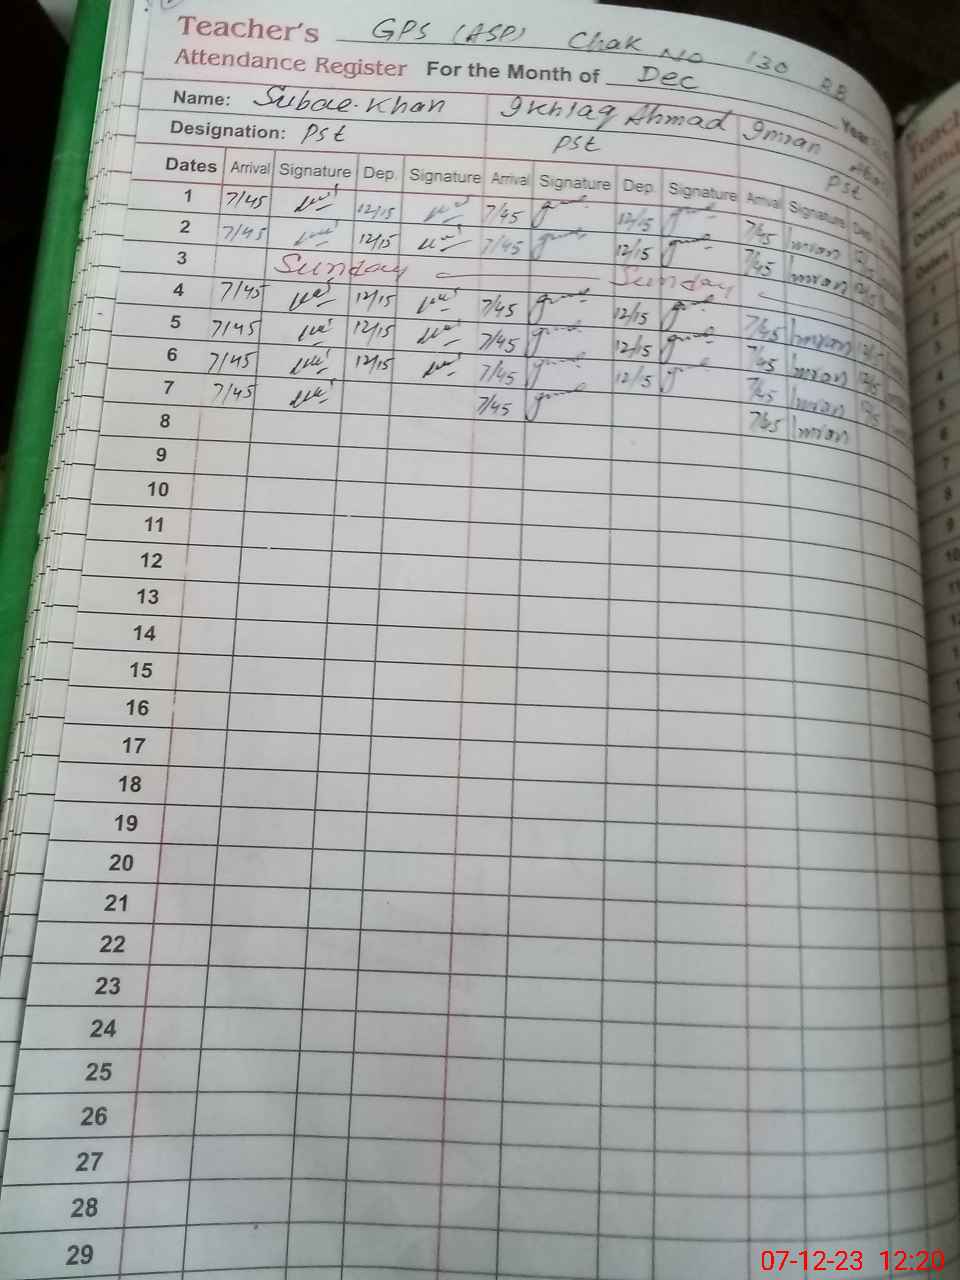 Teacher's GPS (ASP) Chak No 130 BB
Attendance Register For the Month of Dec Year
Name: Subae Khan Ikhlaq Ahmad Imran
Designation: PST PST PST
Dates Arrival Signature Dep. Signature Arrival Signature Dep. Signature Arrival Signature Dep.
1 7/45 12/15 7/45 12/15 7/45 Imran
2 7/45 12/15 7/45 12/15 7/45 Imran
3 Sunday Sunday
4 7/45 12/15 7/45 12/15 7/45 Imran
5 7/45 12/15 7/45 12/15 7/45 Imran
6 7/45 12/15 7/45 12/15 7/45 Imran
7 7/45 7/45 7/45 Imran
8
9
10
11
12
13
14
15
16
17
18
19
20
21
22
23
24
25
26
27
28
29
07-12-23 12:20